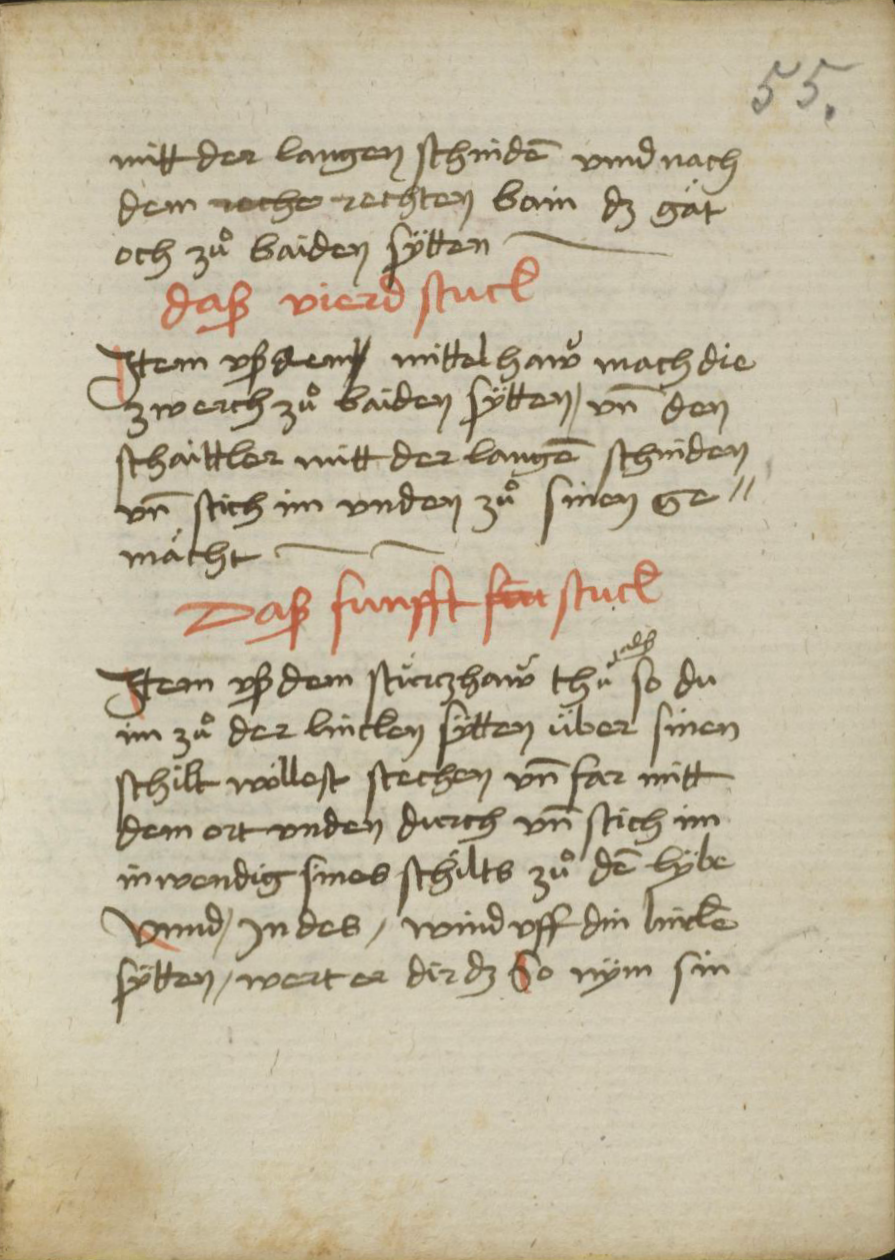 55.
mitt der langen schnidē vnnd nach
dem reche rechten bain dz gät
och zů baiden sÿtten
daß vierd stuck
Item vß dem mittelhaw̆ mach die
zwerch zů baiden sÿtten / vn̄ den
schaittler mitt der langē schniden
vn̄ stich im vnden zů sinen ge〃
mächt
Daß funfft stuck
Item vß dem stürczhaw̆ thů so du
im zů der lincken sÿtten über sinen
schilt wöllest stechen vn̄ far mitt
dem ort vnden durch vn̄ stich im
inwendig sines schilts zů dē lÿbe
Vnnd / Indes / wind vff din linckē
sÿtten / wert er dir dz So nÿm sin